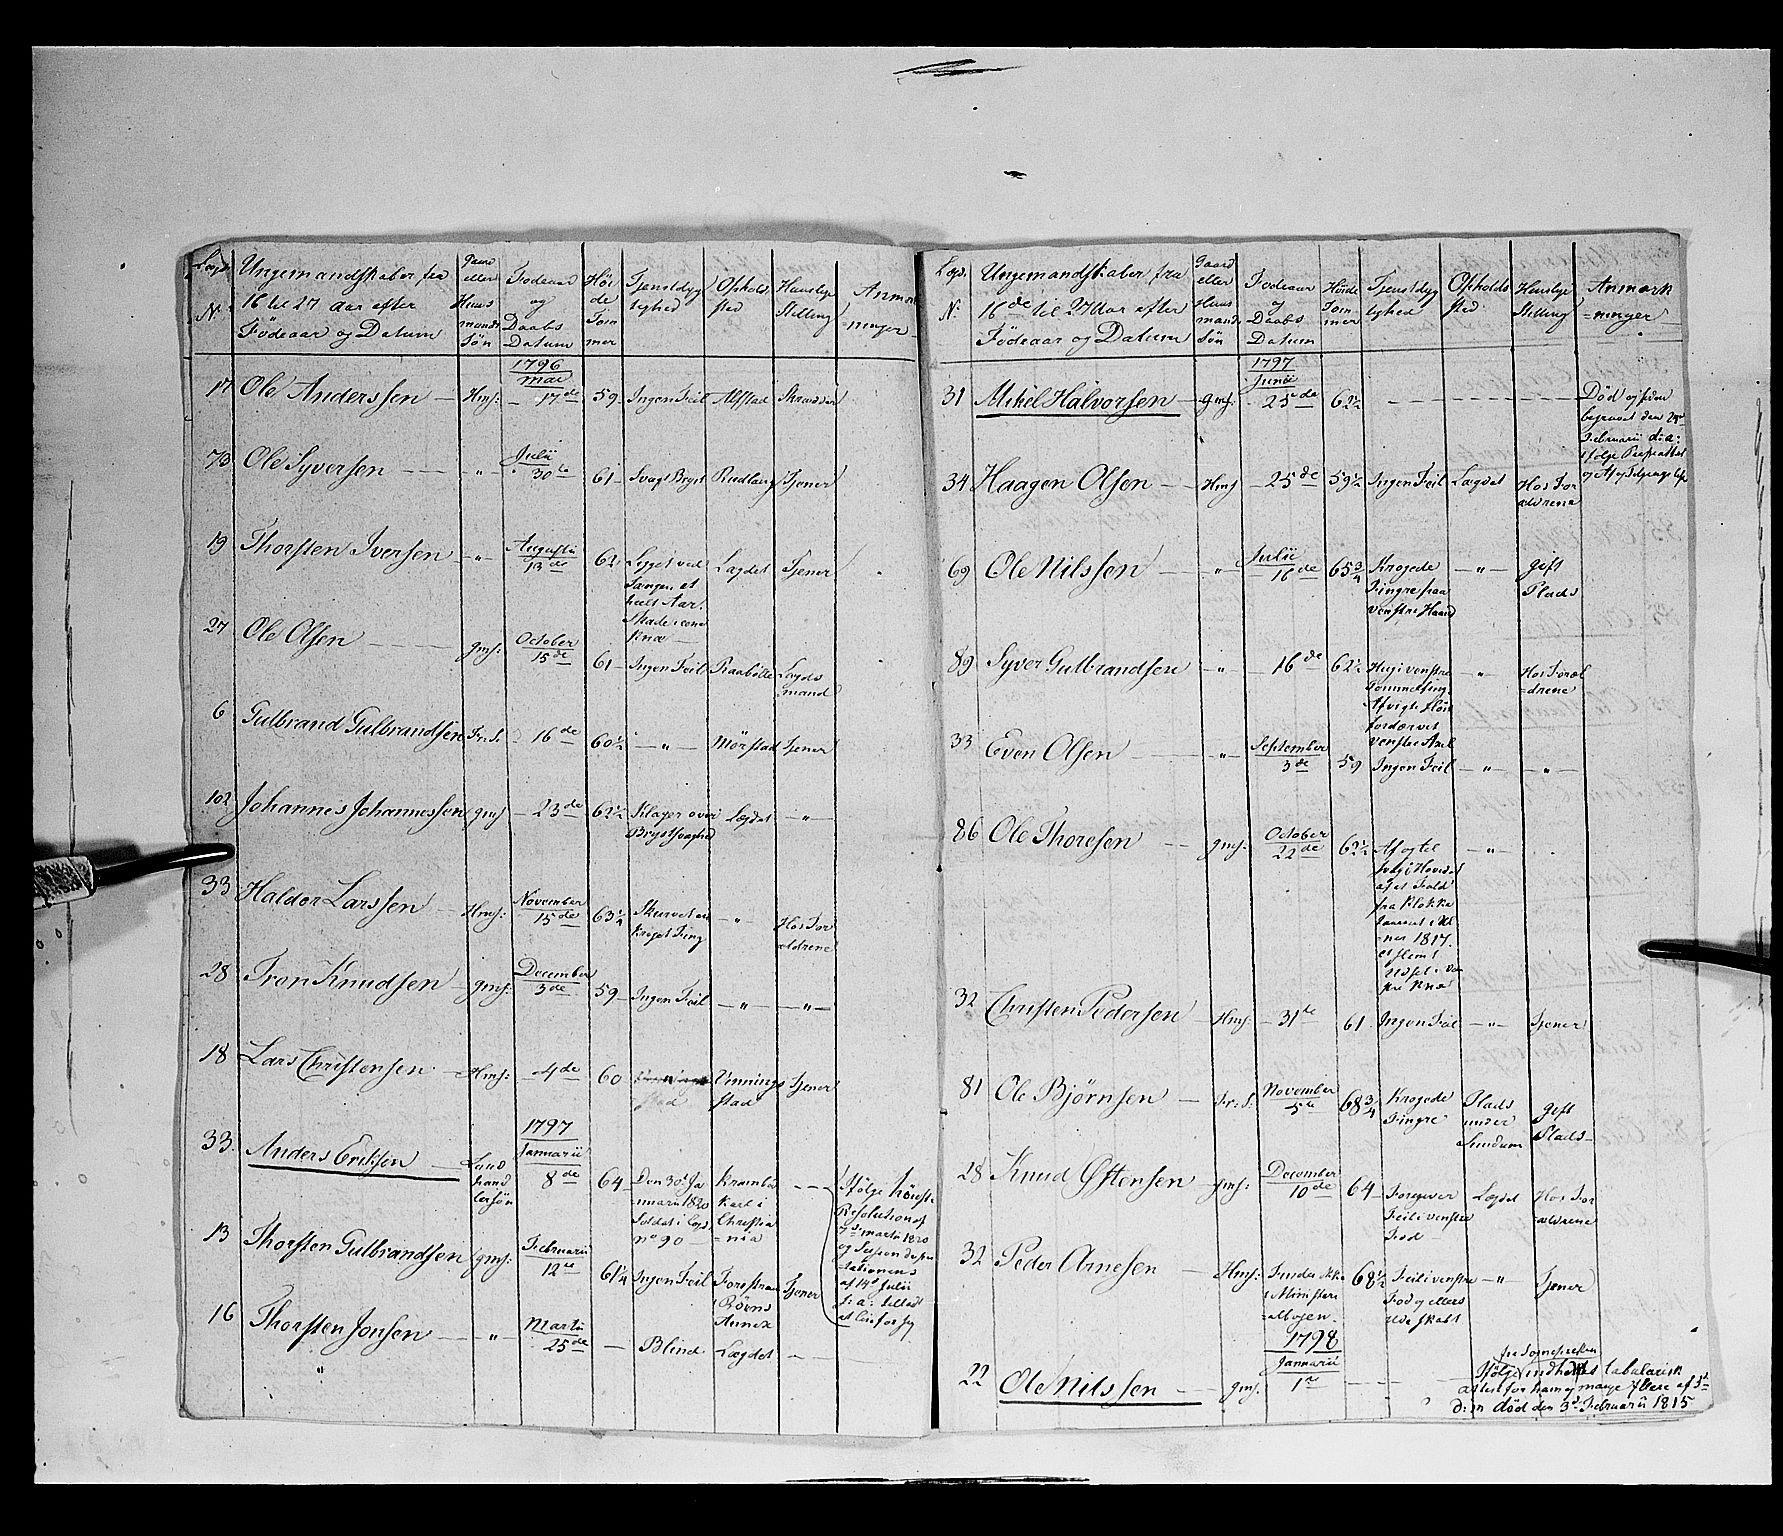 Lægd. N: | Ungemandskaber fra 16 til 27 aar efter Födeaar og Datum | Gaard eller Huusmands Sön | Fodeaar og Daabs Datum | Höide Tommer | Tjenstdyg tighed | Opholds sted | Huuslige Stilling | Anmærk =ninger
1796
17 Ole Anderssen — Hms: Mai 17de 59 Ingen Feil Alfstad Skrædder
73 Ole Syversen — " Julii 30te 61 Svagt Bryst Rudlang Tjener
19 Thorsten Iversen — " Augusti 13de 62 Ligget ved Sangen et heelt Aar. Skade i ene Knæ Lægdet Tjener
27 Ole Olsen — gms: October 15de 61 Ingen Feil Raabölle Lægds mand
6 Gulbrand Gulbrandsen Fr: S: 16de 60½ — " — Mörstad Tjener
102 Johannes Johannessen gms 23de 62½ Klager over Brystsvaghed Lægdet — " —
33 Haldor Larssen — Hms: November 15de 63¼ Skurvet en Kroget Fing — " — Hos For ældrene
28 Tron Knudsen — gms: December 3de 59 Ingen Feil — " — — " —
18 Lars Christensen — Hms: 4de 60 Vinnings stad Tjener
1797
33. Anders Eriksen — Land handlersön Januarii 8de 64 Den 30te Januarii 1820 Soldat i Lægd no 90 Krambod Karl i Christia =nia — Ifölge höieste Resolution af 7de Martii 1820 og Session deputationens af 14de Julii S: a: tilladt at löse for sig
13 Thorsten Gulbrandsen gms: Februarii 12te 61¼ Ingen Feil Annex Tjener
16 Thorsten Jonsen — " Martii 25de — Blind Lægdet —
"
Lægd. N: | Ungemandskaber fra 16de til 27 Aar efter Födeaar og Datum | Gaard eller Huusmands Sön | Fodeaar og Daabs Datum | Höide Tommer | Tjenstdyg tighed | Opholds sted | Huuslige Stilling | Anmærk =ninger
1797
31 Mikel Halvorsen — gms: Junii 25de 62½ — Död og begravet den Februarii d: a: ifölge
34 Haagen Olsen — Hms 25de 59½ Ingen Feil Lægdet Hos For ældrene
69 Ole Nilssen — " Julii 16de 65¾ Krogede Fingre paa venstre Haand — " — gift Plads
89 Syver Gulbrandsen — " 16de 62½ Hug i venstre Tommelfing. fordærvet venstre Axel — " — Hos Foræl =drene
33 Even Olsen — " — September 3de 59 Ingen Feil — " — — " —
86 Ole Thoresen — gms: October 22de 62½ i Hovedet af et Fald fra Klokke 1817. et slemt Udset i Knæ — " —
32 Christen Pedersen — Hms: 31te 61 Ingen Feil — " — Tjener
81 Ole Björnsen — Fr: S: November 5te 68¾ Krogede Fingre Plads under Sundum gift Plads
28 Knud Östensen — gms: December 10de 64 Foregiver Feil i venstre Fod Lægdet Hos For ældrene
32 Peder Arnesen — Hms: Findes ikke i Ministeri =albogen. 68½ Feil i venstre Fod og ellers — " — Tjener
1798
22 Ole Nilssen — gms. Januarii 1te — Ifölge fra Sognepræsten indhentet tabularisk attest for ham og mange flere af d: m död den 3de Februarii 1815